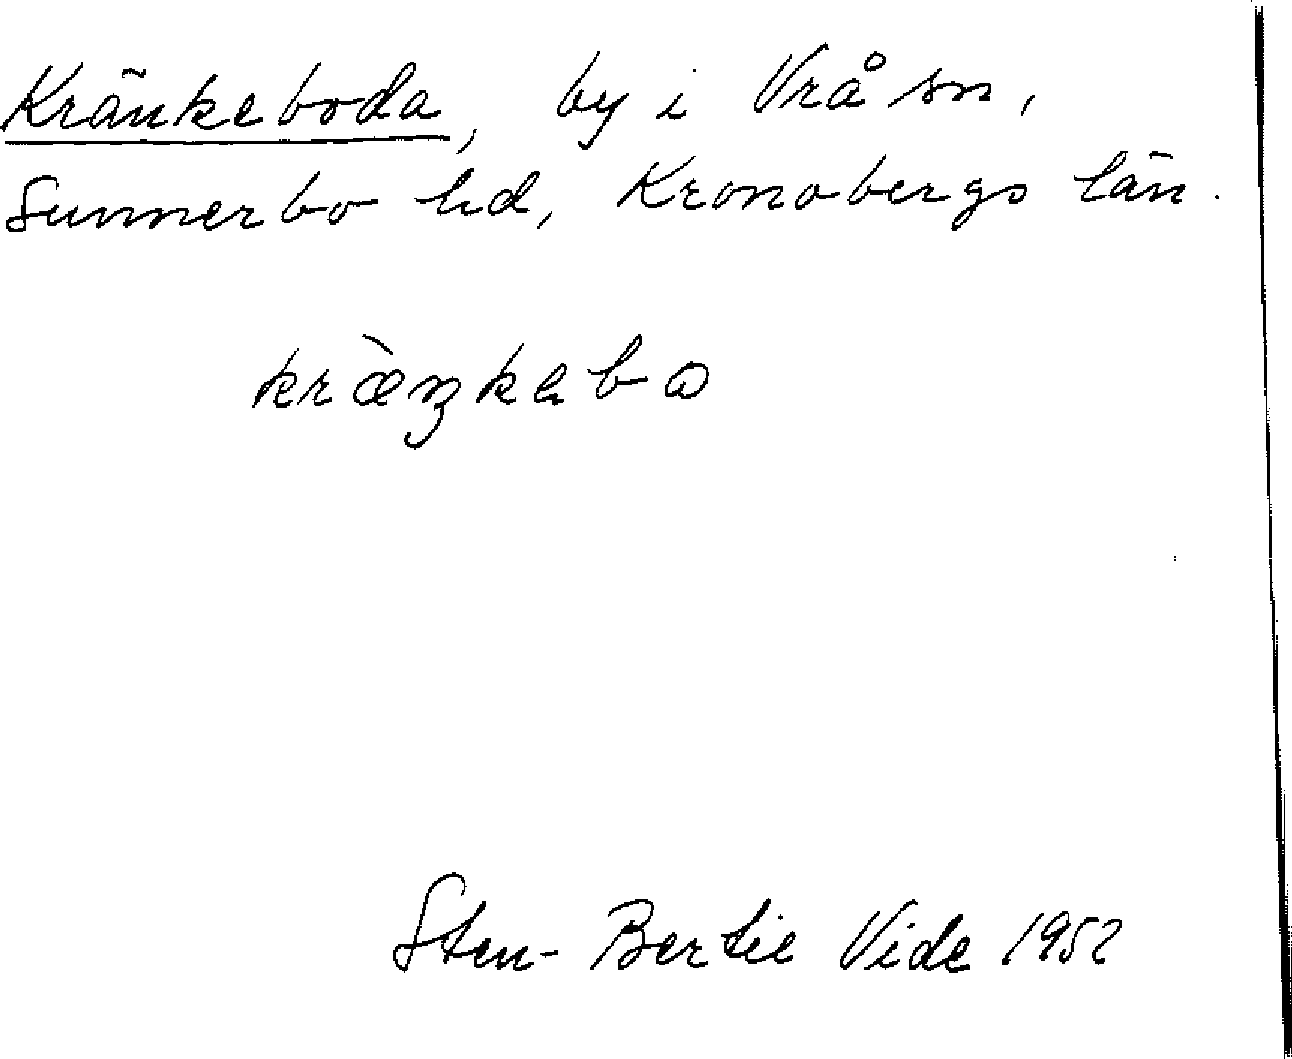 Kränkeboda, by i Vrå sn,
Sunnerbo hd, Kronobergs län.
kræ̀ŋkebo
Sten-Bertil Vide 1952